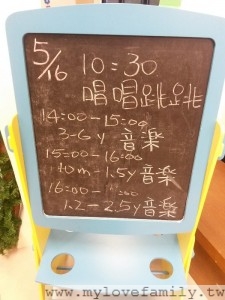 5/16 10:30
唱唱跳跳
14:00-15:00
3-6y 音樂
15:00-16:00
10m-1.5y 音樂
16:00-17:00
1.2-2.5y 音樂
www.mylovefamily.tw